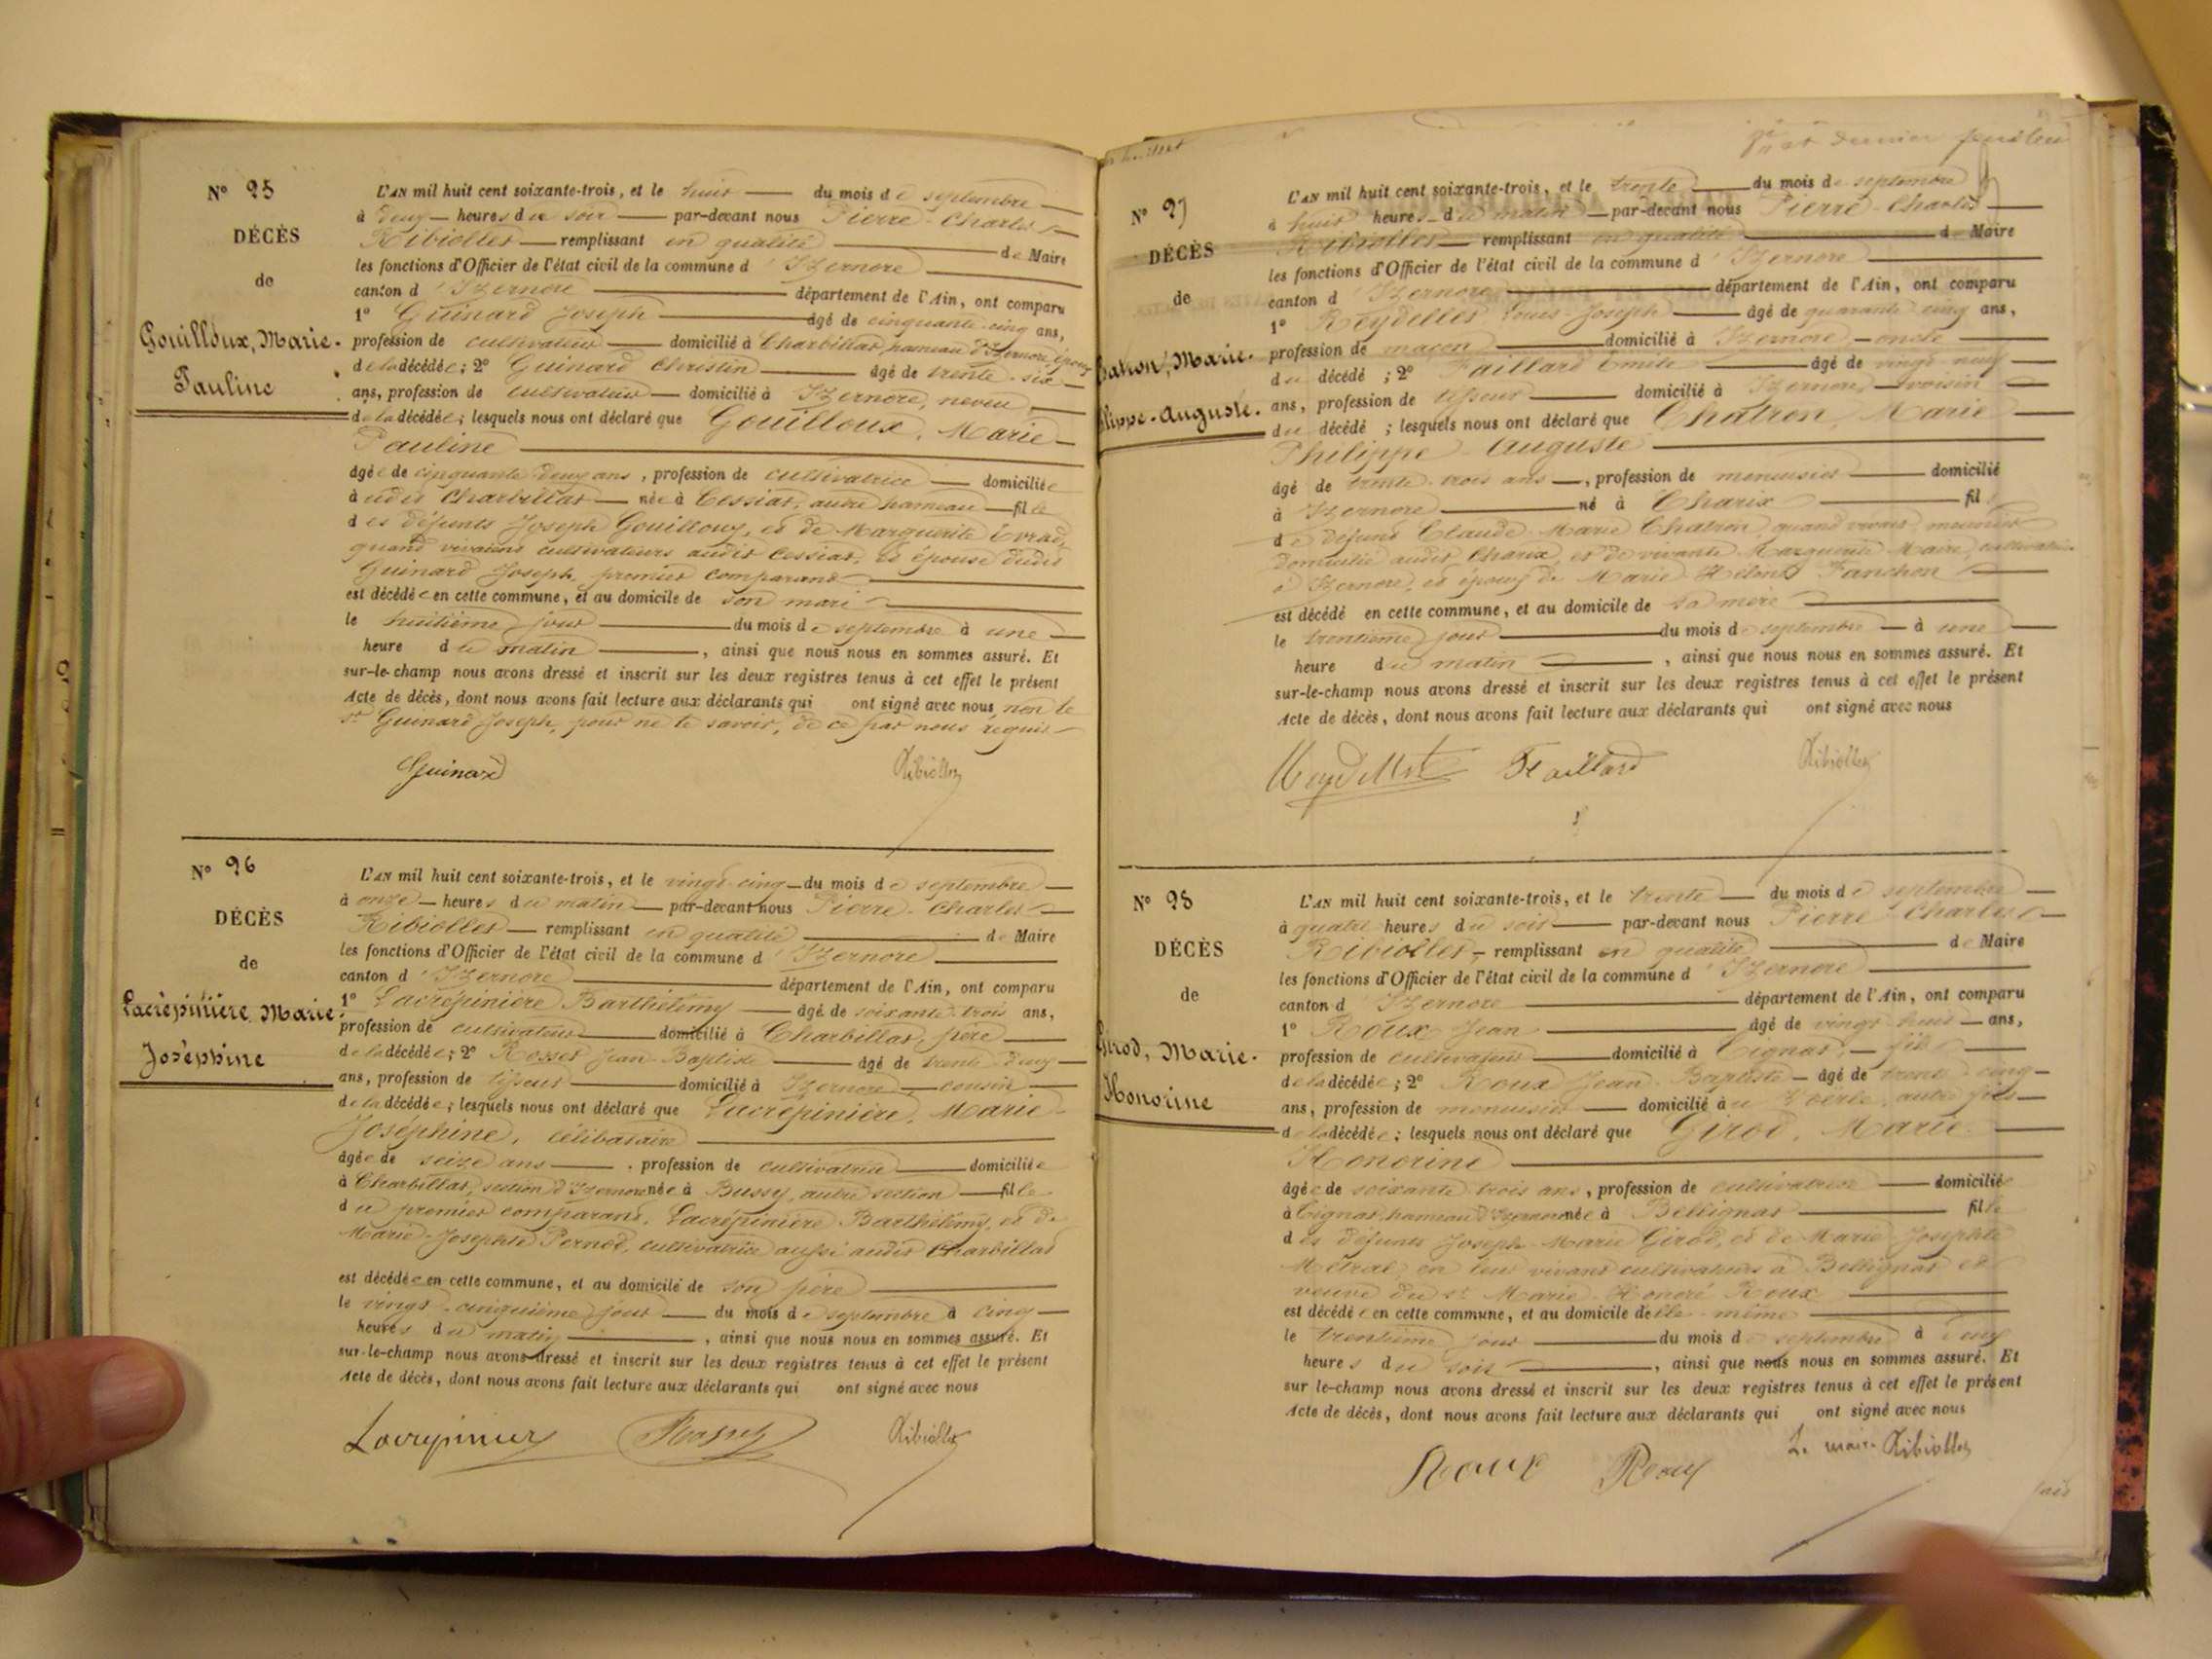 N° 25
DÉCÈS
de
Gouilloux, Marie-
Pauline
L'AN mil huit cent soixante-trois, et le huit du mois de septembre
à deux heures du soir par-devant nous Pierre-Charles
Ribiollet remplissant en qualité de Maire
les fonctions d'Officier de l'état civil de la commune d'Izernore
canton d'Izernore département de l'Ain, ont comparu
1° Guinard Joseph âgé de cinquante-cinq ans,
profession de cultivateur domicilié à Charbillat, hameau d'Izernore, époux
de la décédée; 2° Guinard Christin âgé de trente-six
ans, profession de cultivateur domicilié à Izernore, neveu
de la décédée; lesquels nous ont déclaré que Gouilloux, Marie-
Pauline
âgée de cinquante-deux ans, profession de cultivatrice domiciliée
à udit Charbillat née à Cessiat, autre hameau fille
des défunts Joseph Gouilloux, et de Marguerite
quand vivaient cultivateurs audit Cessiat, et épouse dudit
Guinard Joseph, premier comparant
est décédée en cette commune, et au domicile de son mari
le huitième jour du mois de septembre à une
heure du matin, ainsi que nous nous en sommes assuré. Et
sur-le-champ nous avons dressé et inscrit sur les deux registres tenus à cet effet le présent
Acte de décès, dont nous avons fait lecture aux déclarants qui ont signé avec nous, non le
sr Guinard Joseph, pour ne le savoir, de ce par nous requis
Guinard Ribiollet
N° 26
DÉCÈS
de
Lacrépinière, Marie-
Joséphine
L'AN mil huit cent soixante-trois, et le vingt-cinq du mois de septembre
à onze heures du matin par-devant nous Pierre-Charles
Ribiollet remplissant en qualité de Maire
les fonctions d'Officier de l'état civil de la commune d'Izernore
canton d'Izernore département de l'Ain, ont comparu
1° Lacrépinière Barthélémy âgé de soixante-trois ans,
profession de cultivateur domicilié à Charbillat, père
de la décédée; 2° Rosset Jean-Baptiste âgé de trente-deux
ans, profession de tisseur domicilié à Izernore cousin
de la décédée; lesquels nous ont déclaré que Lacrépinière, Marie-
Joséphine, célibataire
âgée de seize ans, profession de cultivatrice domiciliée
à Charbillat, section d'Izernore née à Bussy, autre section fille
du premier comparant, Lacrépinière Barthélémy, et de
Marie-Josephte Pernod, cultivatrice aussi audit Charbillat
est décédée en cette commune, et au domicile de son père
le vingt-cinquième jour du mois de septembre à cinq
heures du matin, ainsi que nous nous en sommes assuré. Et
sur-le-champ nous avons dressé et inscrit sur les deux registres tenus à cet effet le présent
Acte de décès, dont nous avons fait lecture aux déclarants qui ont signé avec nous
Ribiollet
7e et dernier feuillet
N° 27
DÉCÈS
de
Chatron, Marie-
Philippe-Auguste.
L'AN mil huit cent soixante-trois, et le trente du mois de septembre
à huit heures du matin par-devant nous Pierre-Charles
Ribiollet remplissant en qualité de Maire
les fonctions d'Officier de l'état civil de la commune d'Izernore
canton d'Izernore département de l'Ain, ont comparu
1° Reydellet Louis-Joseph âgé de quarante-cinq ans,
profession de maçon domicilié à Izernore oncle
du décédé; 2° Faillard Emile âgé de vingt-neuf
ans, profession de tisseur domicilié à Izernore voisin
du décédé; lesquels nous ont déclaré que Chatron, Marie
Philippe-Auguste
âgé de trente-trois ans, profession de menuisier domicilié
à Izernore né à Charix fils
de défunt Claude-Marie Chatron, quand vivait menuisier
domicilié audit Charix, et de vivante Marguerite Maire, cultivatrice
à Izernore, et époux de Marie-Fanchon
est décédé en cette commune, et au domicile de sa mère
le trentième jour du mois de septembre à une
heure du matin, ainsi que nous nous en sommes assuré. Et
sur-le-champ nous avons dressé et inscrit sur les deux registres tenus à cet effet le présent
Acte de décès, dont nous avons fait lecture aux déclarants qui ont signé avec nous
Reydellet Faillard Ribiollet
N° 28
DÉCÈS
de
Girod, Marie-
Honorine
L'AN mil huit cent soixante-trois, et le trente du mois de septembre
à quatre heures du soir par-devant nous Pierre-Charles
Ribiollet, remplissant en qualité de Maire
les fonctions d'Officier de l'état civil de la commune d'Izernore
canton d'Izernore département de l'Ain, ont comparu
1° Roux Jean âgé de vingt-huit ans,
profession de cultivateur domicilié à Tignat, fils
de la décédée; 2° Roux Jean-Baptiste âgé de trente-cinq
ans, profession de menuisier domicilié au autre fils
de la décédée; lesquels nous ont déclaré que Girod, Marie-
Honorine
âgée de soixante-trois ans, profession de cultivatrice domiciliée
à Tignat, hameau d'Izernore née à Bellignat fille
des défunts Joseph-Marie Girod, et de Marie-Josephte
Métral, en leur vivant cultivateurs à Bellignat et
veuve du sr Marie-Honoré Roux
est décédée en cette commune, et au domicile d'elle-même
le trentième jour du mois de septembre à deux
heures du soir, ainsi que nous nous en sommes assuré. Et
sur le-champ nous avons dressé et inscrit sur les deux registres tenus à cet effet le présent
Acte de décès, dont nous avons fait lecture aux déclarants qui ont signé avec nous
Roux Roux Le maire Ribiollet